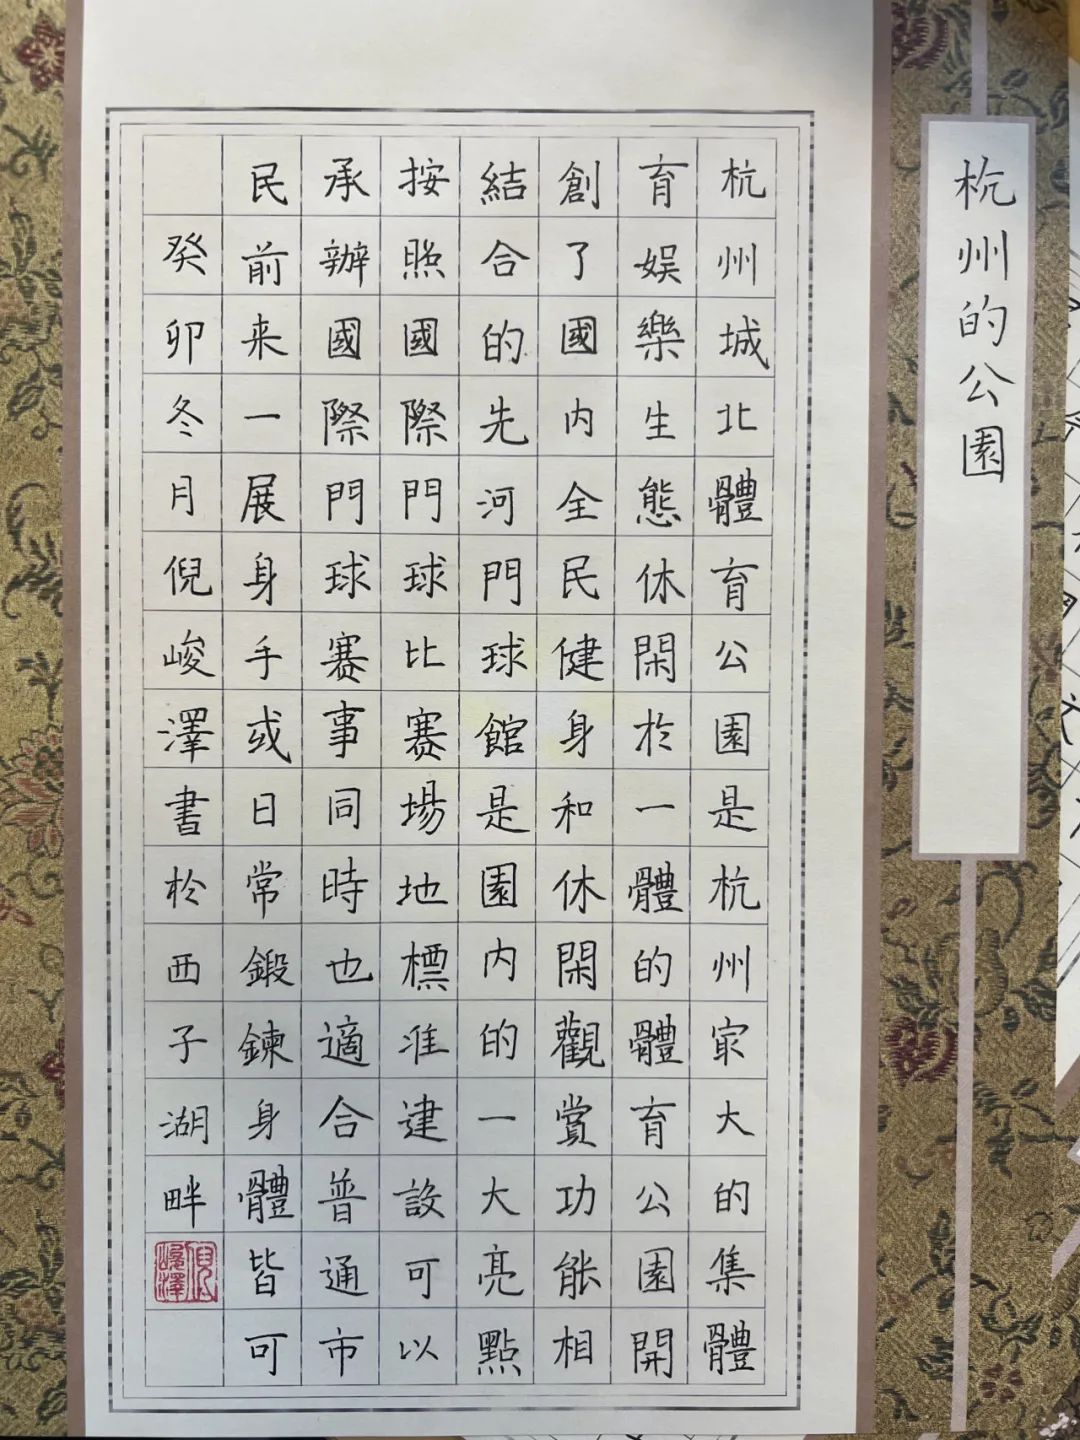 杭州的公園
杭州城北體育公園是杭州㝡大的集體
育娛樂生態休閑於一體的體育公園開
創了國内全民健身和休閑觀賞功能相
結合的先河門球館是園内的一大亮點
按照國際門球比賽場地標准建設可以
承辦國際門球賽事同時也適合普通市
民前来一展身手或日常鍛鍊身體皆可
癸卯冬月倪峻澤書於西子湖畔
倪峻澤